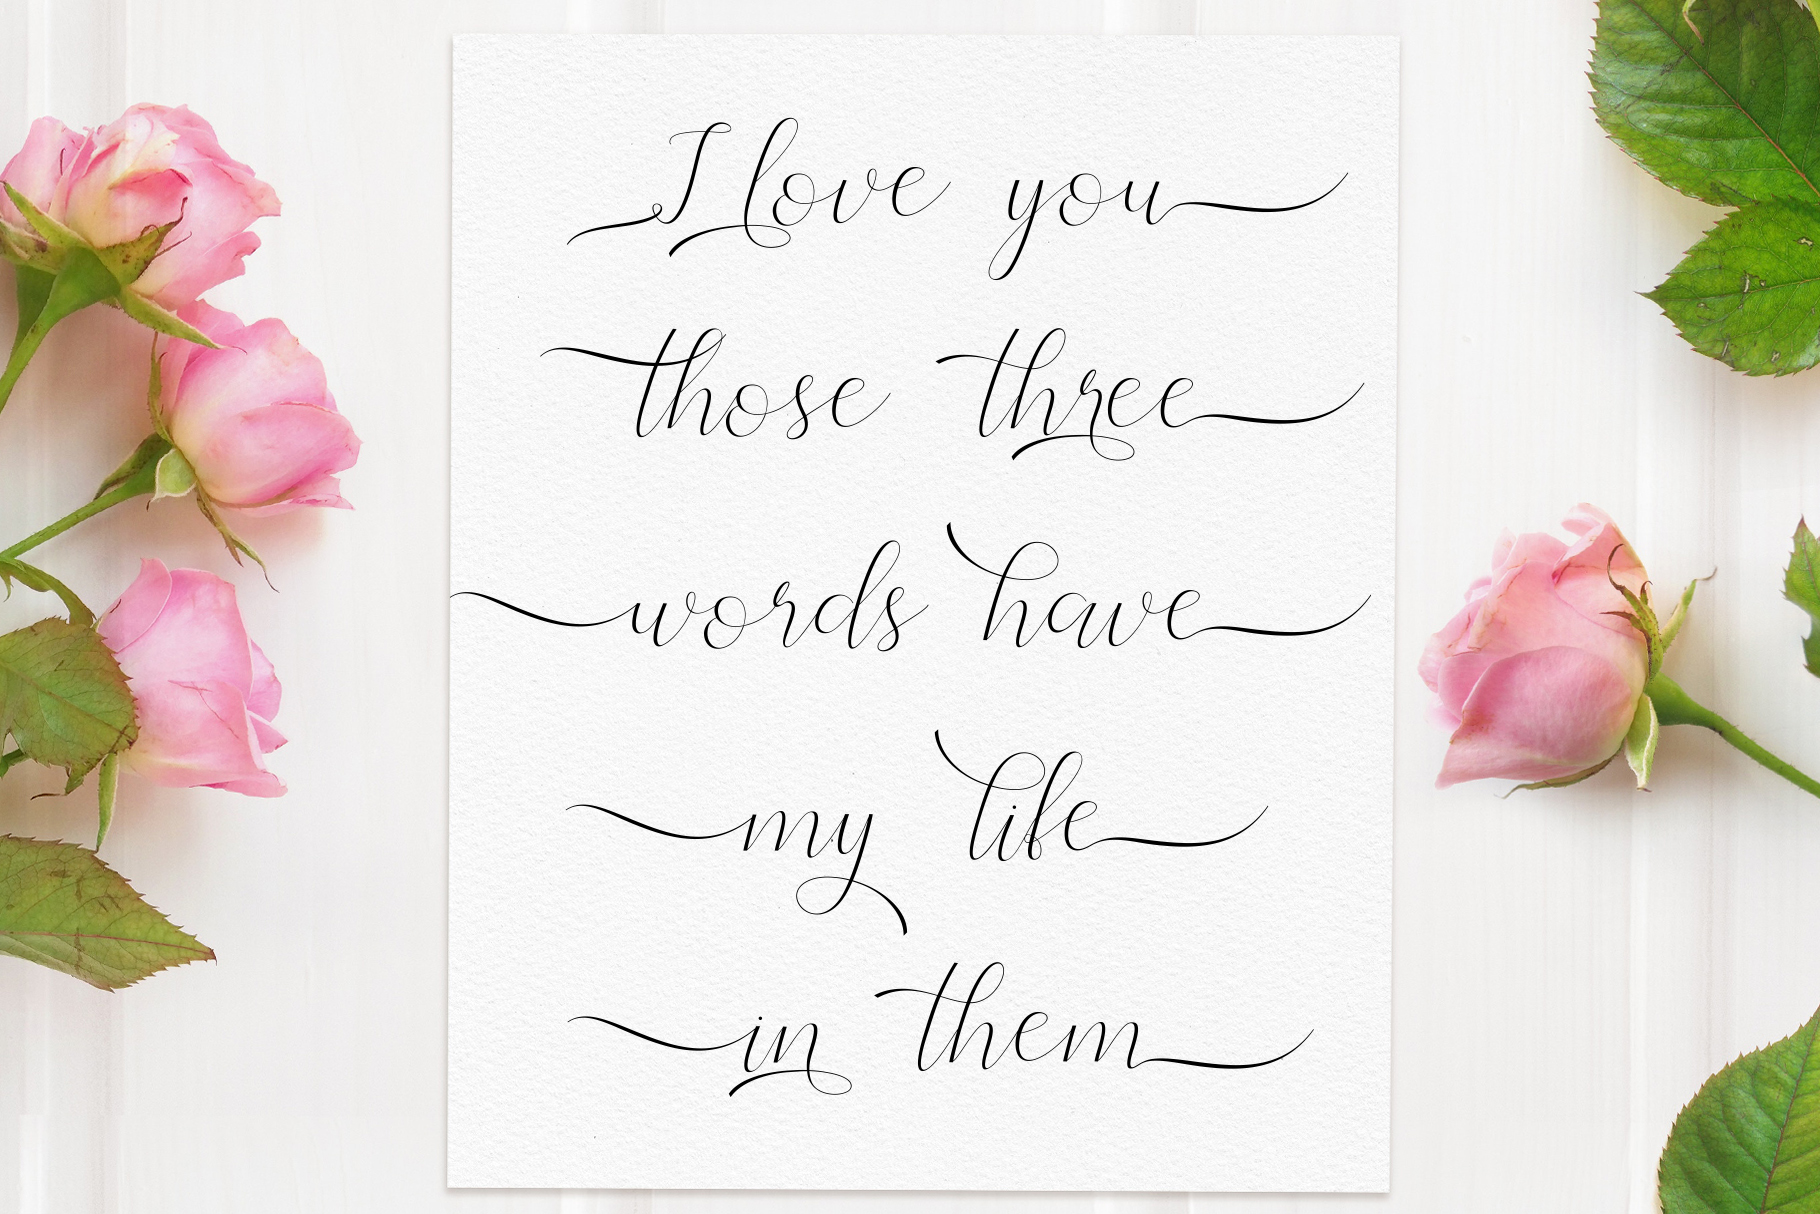 I love you
those three
words have
my life
in them